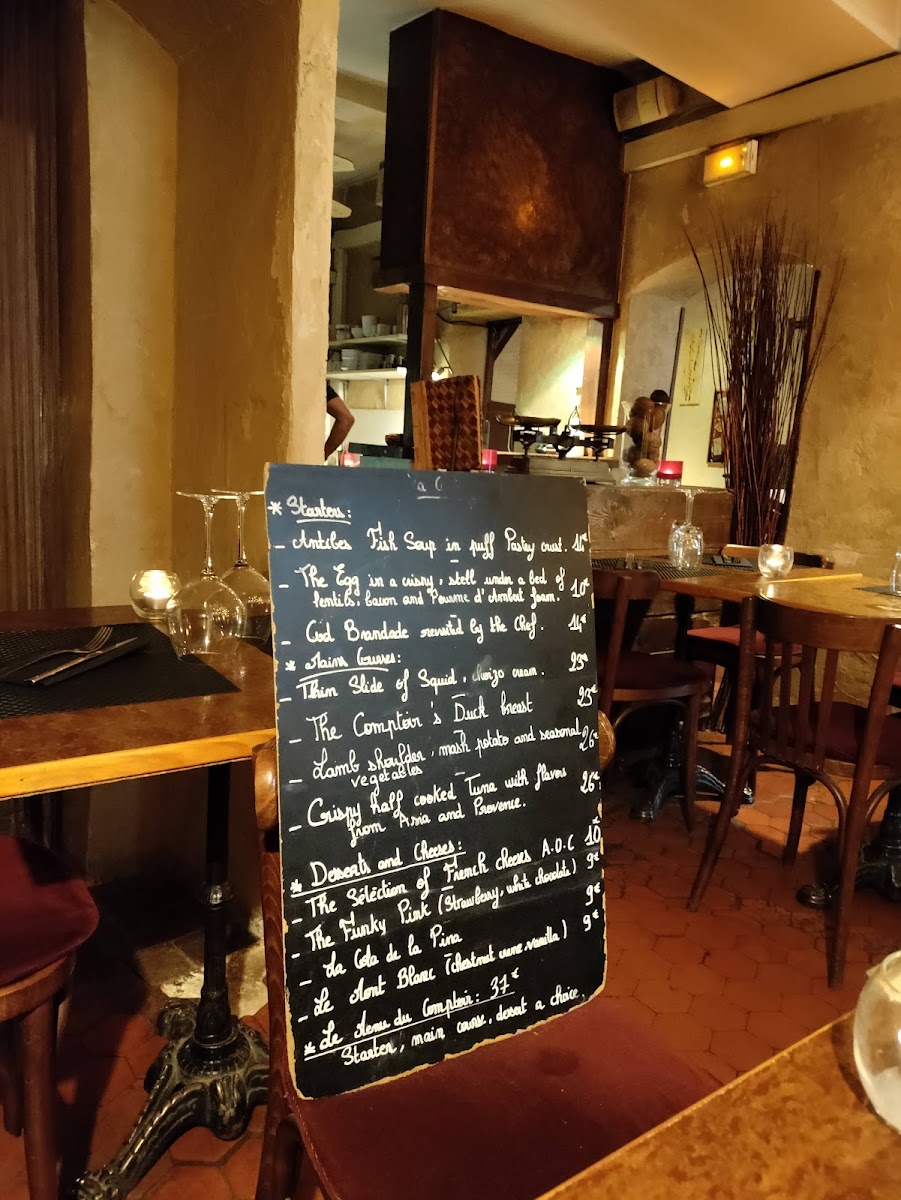 * Starters:
- Antibes Fish Soup in puff Pastry crust. 14€
- The Egg in a crispy, stell under a bed of 10€
lentils, bacon and Fourme d'Ambert foam.
- Cod Brandade revisited by the Chef. 14€
* Mains Courses:
- Thin Slide of Squid, chorizo cream. 23€
- The Comptoir's Duck breast 23€
- Lamb shoulder, mash potato and seasonal 26€
vegetables
- Crispy half cooked Tuna with flavors 26€
from Asia and Provence.
* Desserts and Cheeses:
- The Sélection of French cheeses A.O.C 10€
- The Funky Pink (Strawberry, white chocolate) 9€
- La Cola de la Pina 9€
- Le Mont Blanc (chestnut creme vanilla) 9€
* Le Menu du Comptoir: 37€
Starter, main course, dessert a choice.